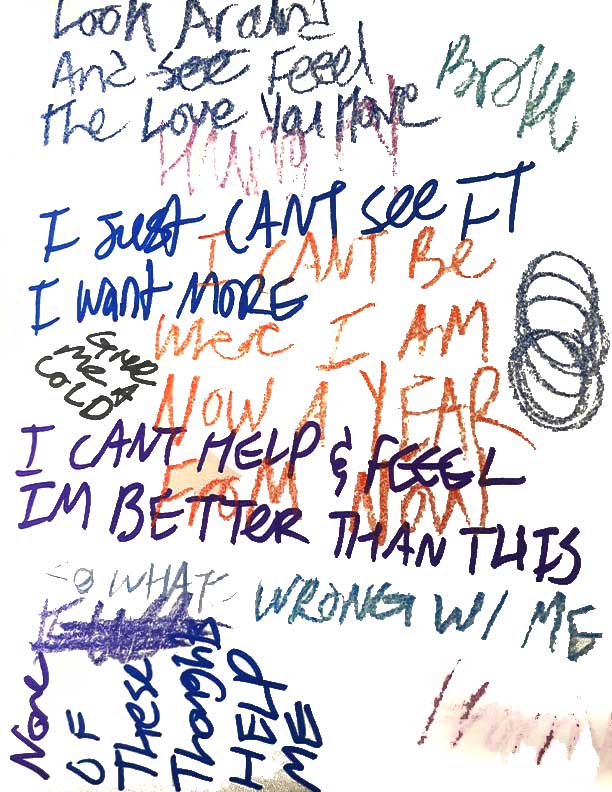 Look Around
And see Feeel
the Love You Have
I Just CANT see IT
I CANT Be
I want MORE
Were I AM
Give
me
COLD
NOW A YEAR
I CANT HELP & FEEEL
FROM NOW
IM BETTER THAN THIS
SO WHAT
WRONG W/ ME
None
OF
THese
Thoughts
HELP
ME